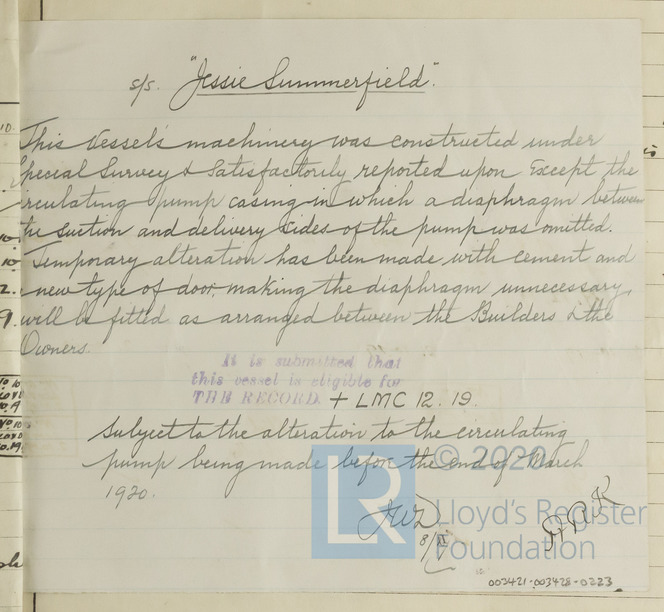 s/s. "Jessie Summerfield".
This vessel's machinery was constructed under
Special Survey & Satisfactorily reported upon Except the
circulating pump casing in which a diaphragm between
the suction and delivery sides of the pump was omitted.
Temporary alteration has been made with cement and
new type of door, making the diaphragm unnecessary,
will be fitted as arranged between the Builders & the
Owners.
It is submitted that
this vessel is eligible for
THE RECORD. + LMC 12.19.
Subject to the alteration to the circulating
pump being made before the end of March
1920.
© 2020
LR
Lloyd's Register
Foundation
003421-003428-0223